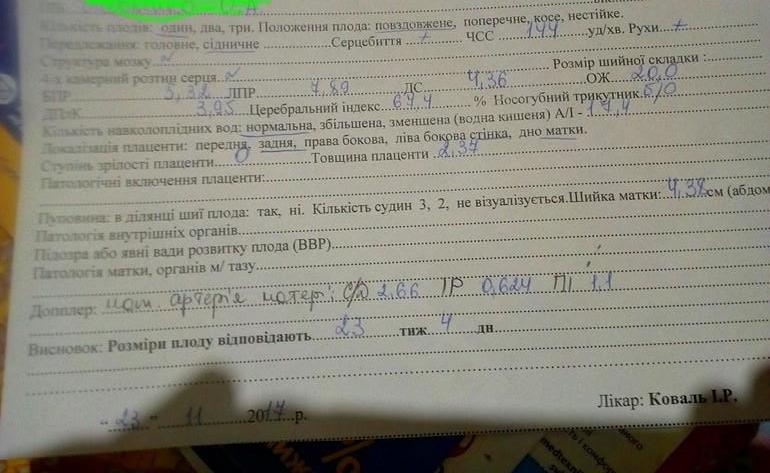 Кількість плодів: один, два, три. Положення плода: повздовжене, поперечне, косе, нестійке.
Передлежання: головне, сідничне ........ Серцебиття + ЧСС 144 уд/хв. Рухи +
Структура мозку N
4-х камерний розтин серця N Розмір шийної складки :
БПР 5,32 ЛПР 7,89 ДС 4,36 ОЖ 20,0
3,95 Церебральний індекс 67,4 % Носогубний трикутник б/о
Кількість навколоплідних вод: нормальна, збільшена, зменшена (водна кишеня) АІ - 17,4
Локалізація плаценти: передня, задня, права бокова, ліва бокова стінка, дно матки.
Ступінь зрілості плаценти 0 Товщина плаценти 2,37
Патологічні включення плаценти:
Пуповина: в ділянці шиї плода: так, ні. Кількість судин 3, 2, не візуалізується. Шийка матки: 4,38 см (абдом
Патологія внутрішніх органів
Підозра або явні вади розвитку плода (ВВР)
Патологія матки, органів м/ тазу
Допплер: мат. артерія матері: С/Д 2,66 ІР 0,624 ПІ 1,1
Висновок: Розміри плоду відповідають 23 тиж 4 дн
"23" 11 2017 р. Лікар: Коваль І.Р.